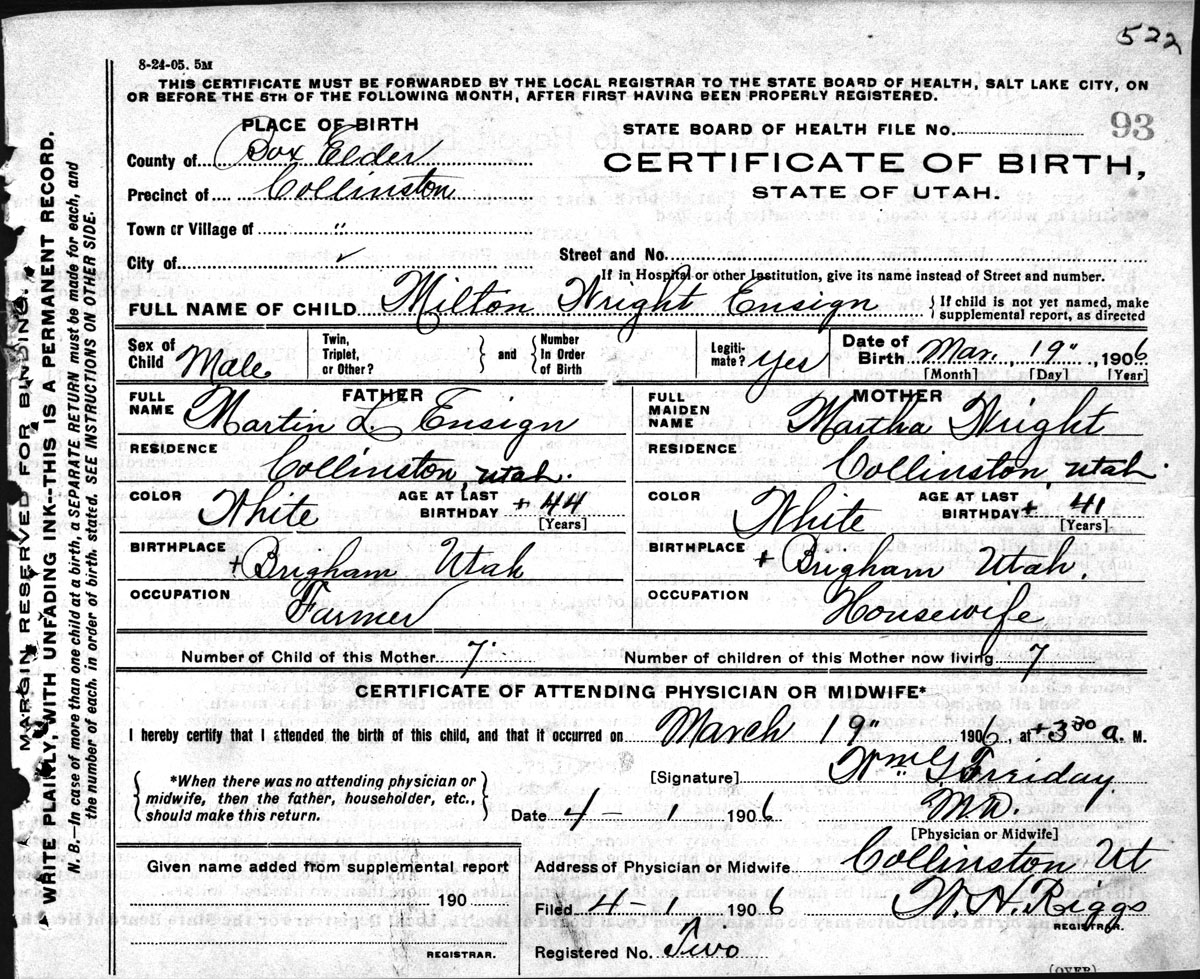 522
8-24-05. 5M
THIS CERTIFICATE MUST BE FORWARDED BY THE LOCAL REGISTRAR TO THE STATE BOARD OF HEALTH, SALT LAKE CITY, ON
OR BEFORE THE 5TH OF THE FOLLOWING MONTH, AFTER FIRST HAVING BEEN PROPERLY REGISTERED.
PLACE OF BIRTH
STATE BOARD OF HEALTH FILE No. 93
County of Box Elder
CERTIFICATE OF BIRTH,
Precinct of Collinston
STATE OF UTAH.
Town or Village of "
City of ✓ Street and No.
If in Hospital or other Institution, give its name instead of Street and number.
FULL NAME OF CHILD Milton Wright Ensign { If child is not yet named, make supplemental report, as directed
Sex of Child Male Twin, Triplet, or Other? } and { Number In Order of Birth Legitimate? Yes Date of Birth Mar. 19", 1906
[Month] [Day] [Year]
FATHER
FULL NAME Martin L Ensign
RESIDENCE Collinston, Utah.
COLOR White AGE AT LAST BIRTHDAY + 44 [Years]
BIRTHPLACE + Brigham Utah
OCCUPATION Farmer
MOTHER
FULL MAIDEN NAME Martha Wright
RESIDENCE Collinston, Utah.
COLOR White AGE AT LAST BIRTHDAY + 41 [Years]
BIRTHPLACE + Brigham Utah.
OCCUPATION Housewife
Number of Child of this Mother 7 Number of children of this Mother now living 7
CERTIFICATE OF ATTENDING PHYSICIAN OR MIDWIFE*
I hereby certify that I attended the birth of this child, and that it occurred on March 19" 1906, at + 3 30 a. M.
{ *When there was no attending physician or midwife, then the father, householder, etc., should make this return. }
[Signature] Wm G Freiday
M.D.
Date 4 - 1 1906
[Physician or Midwife]
Given name added from supplemental report
190
REGISTRAR.
Address of Physician or Midwife Collinston Ut
Filed 4-1 1906 W. H. Riggs
REGISTRAR.
Registered No. Two
(OVER)
MARGIN RESERVED FOR BINDING.
WRITE PLAINLY, WITH UNFADING INK--THIS IS A PERMANENT RECORD.
N. B.—In case of more than one child at a birth, a SEPARATE RETURN must be made for each, and
the number of each, in order of birth, stated. SEE INSTRUCTIONS ON OTHER SIDE.